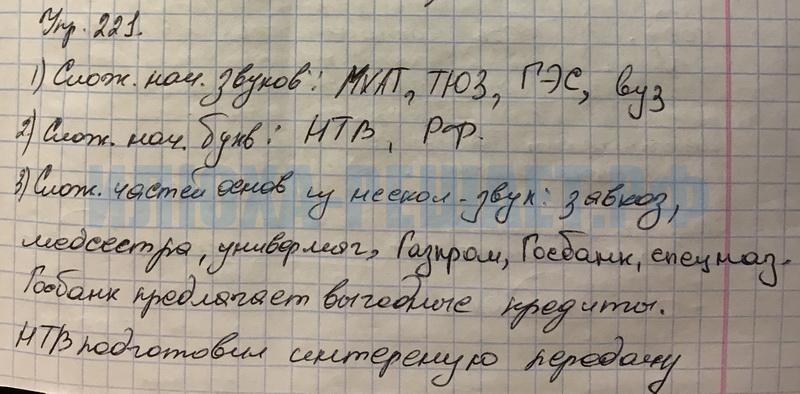 Упр. 221.
1) Слож. нач. звуков: МХАТ, ТЮЗ, ГЭС, вуз
2) Слож. нач. букв: НТВ, РФ.
3) Слож. частей основ из нескол-звук: завхоз,
медсестра, универмаг, Газпром, Госбанк, спецназ.
Госбанк предлагает выгодные кредиты.
НТВ подготовил интересную передачу